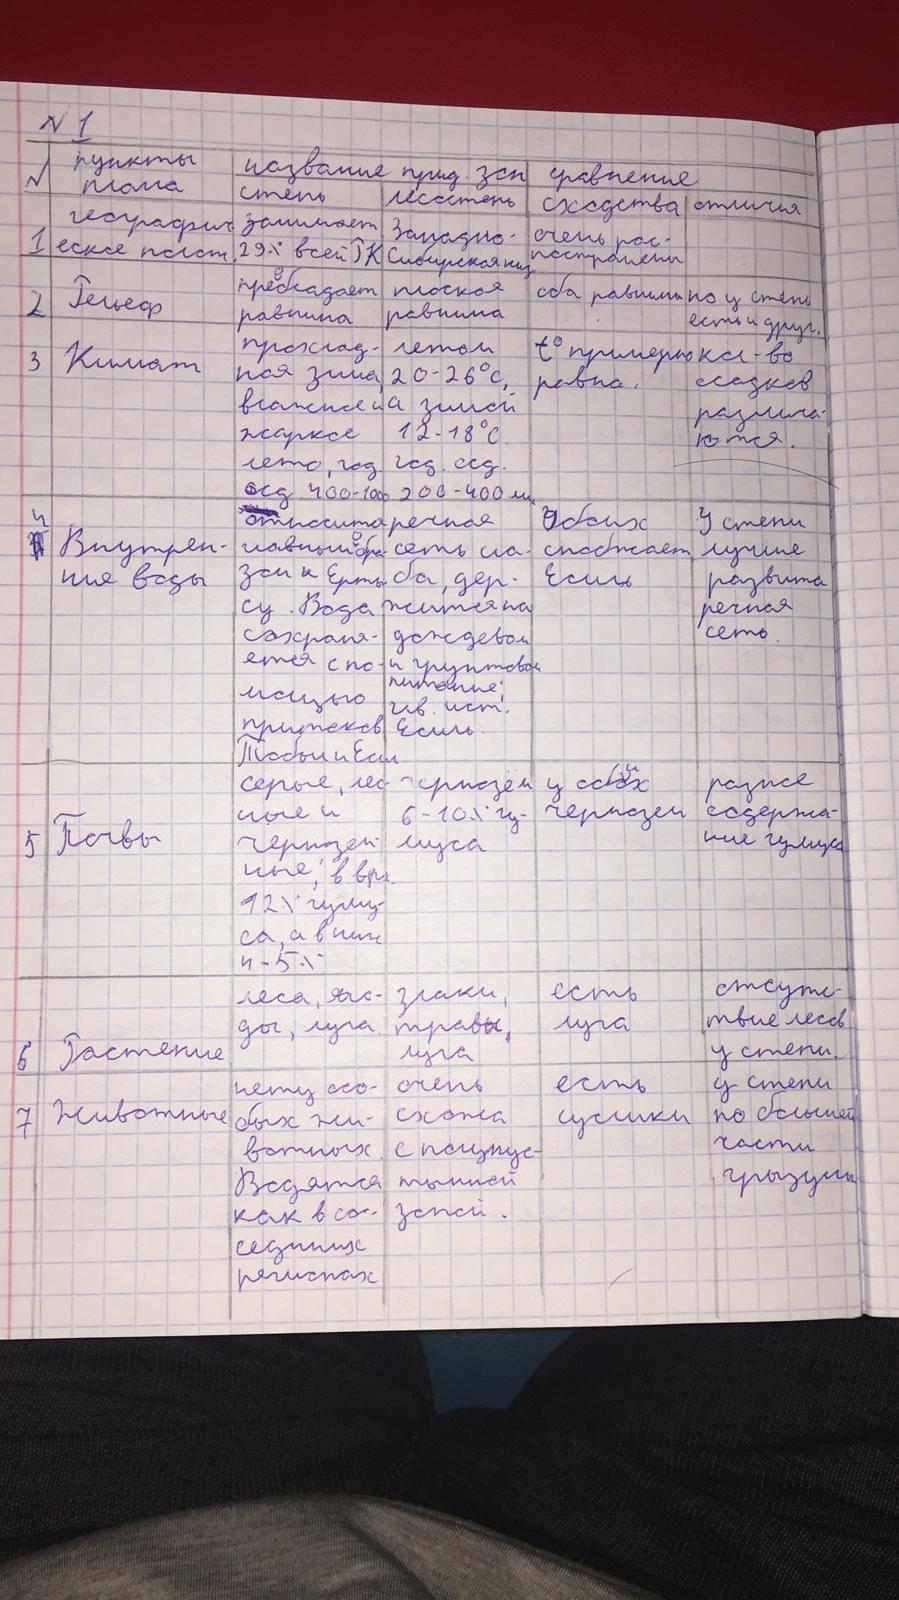 N 1
N пункты плана
название прид. зон
сравнение
степь
лесостень
сходства
отличия
1 географич
еское полож.
занимает
29% всей РК
Западно-
Сибирская низ
очень рас-
постранены
2 Рельеф
преобладает
равнина
плоская
равнина
оба равнины
но у степь
есть и друг.
3 Климат
прохлад-
ная зима,
влажное и
жаркое
лето, год.
осд. 400-1000
летом
20-26°С,
а зимой
12-18°С.
год. осд.
200-400 мм
t° примерно
равна.
кол-во
осадков
различа-
ются.
4 Внутрен-
ние воды
относится
главный обра-
зом к Ерты-
су. Вода
сохраня-
ется с по-
мощью
притоков
Тобыл и Есил
речная
сеть сла-
ба, дер-
жится на
дождевом
и грунтовом
питание;
гл. ист.
Есиль.
Уобоих
снабжает
Есиль
У степи
лучше
развита
речная
сеть.
5 Почвы
серые, лес-
ные и
чернозем-
ные; в врх.
12% гуму-
са, а в ниж
4-5%
чернозём
6-10% гу-
муса
у обоих
чернозем
разное
содержа-
ние гумуса
6 Растение
леса, яго-
ды, луга
злаки,
травы,
луга
есть
луга
отсутс-
твие лесов
у степи.
7 Животные
нету осо-
бых жи-
вотных.
Водятся
как в со-
седних
регионах
очень
схожа
с полупус-
тынной
зоной.
есть
суслики
у степи
по большей
части
грызуны